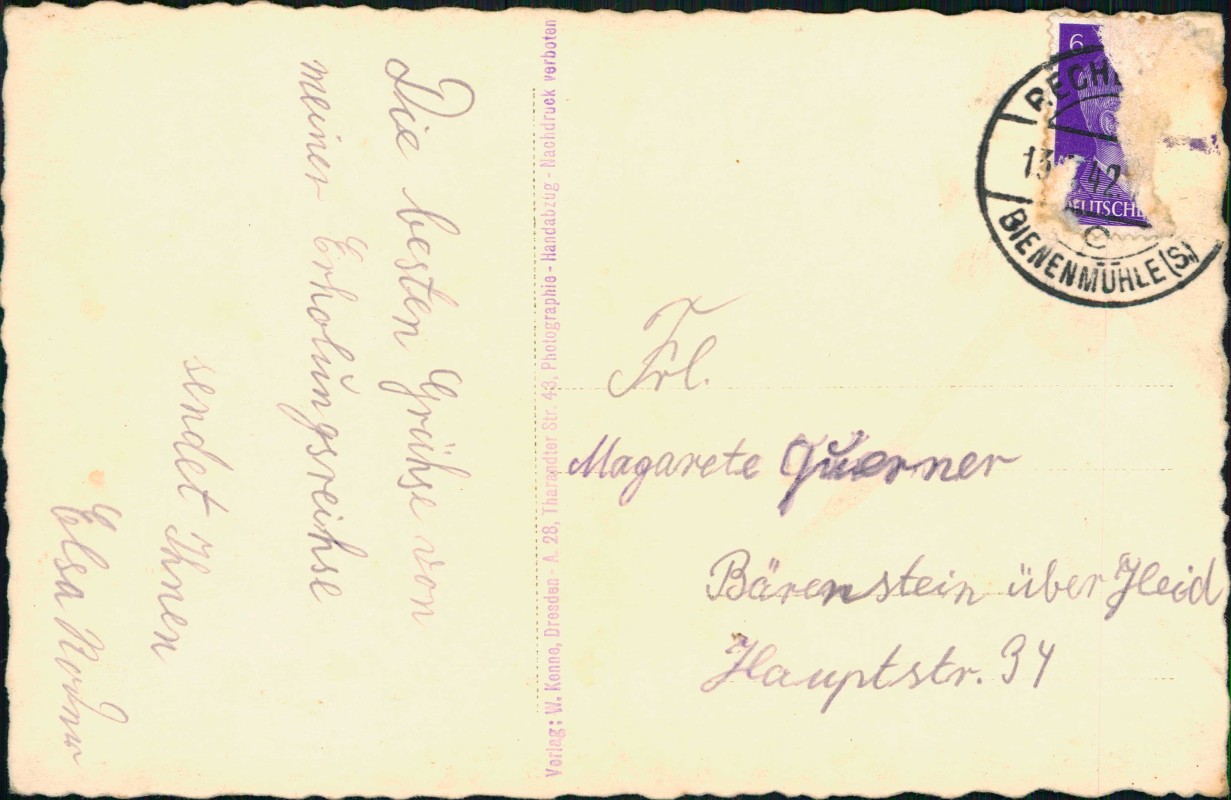 Die besten Grühse von
meiner Erholungsreihse
sendet Ihnen
Elsa
Verlag: W. Kenne, Dresden - A. 28, Tharandter Str. 43, Photographie - Handabzug - Nachdruck verboten
6
13 42
DEUTSCHE
C
BIENENMÜHLE (S)
Frl.
Magarete Querner
Bärenstein über Heid
Hauptstr. 34